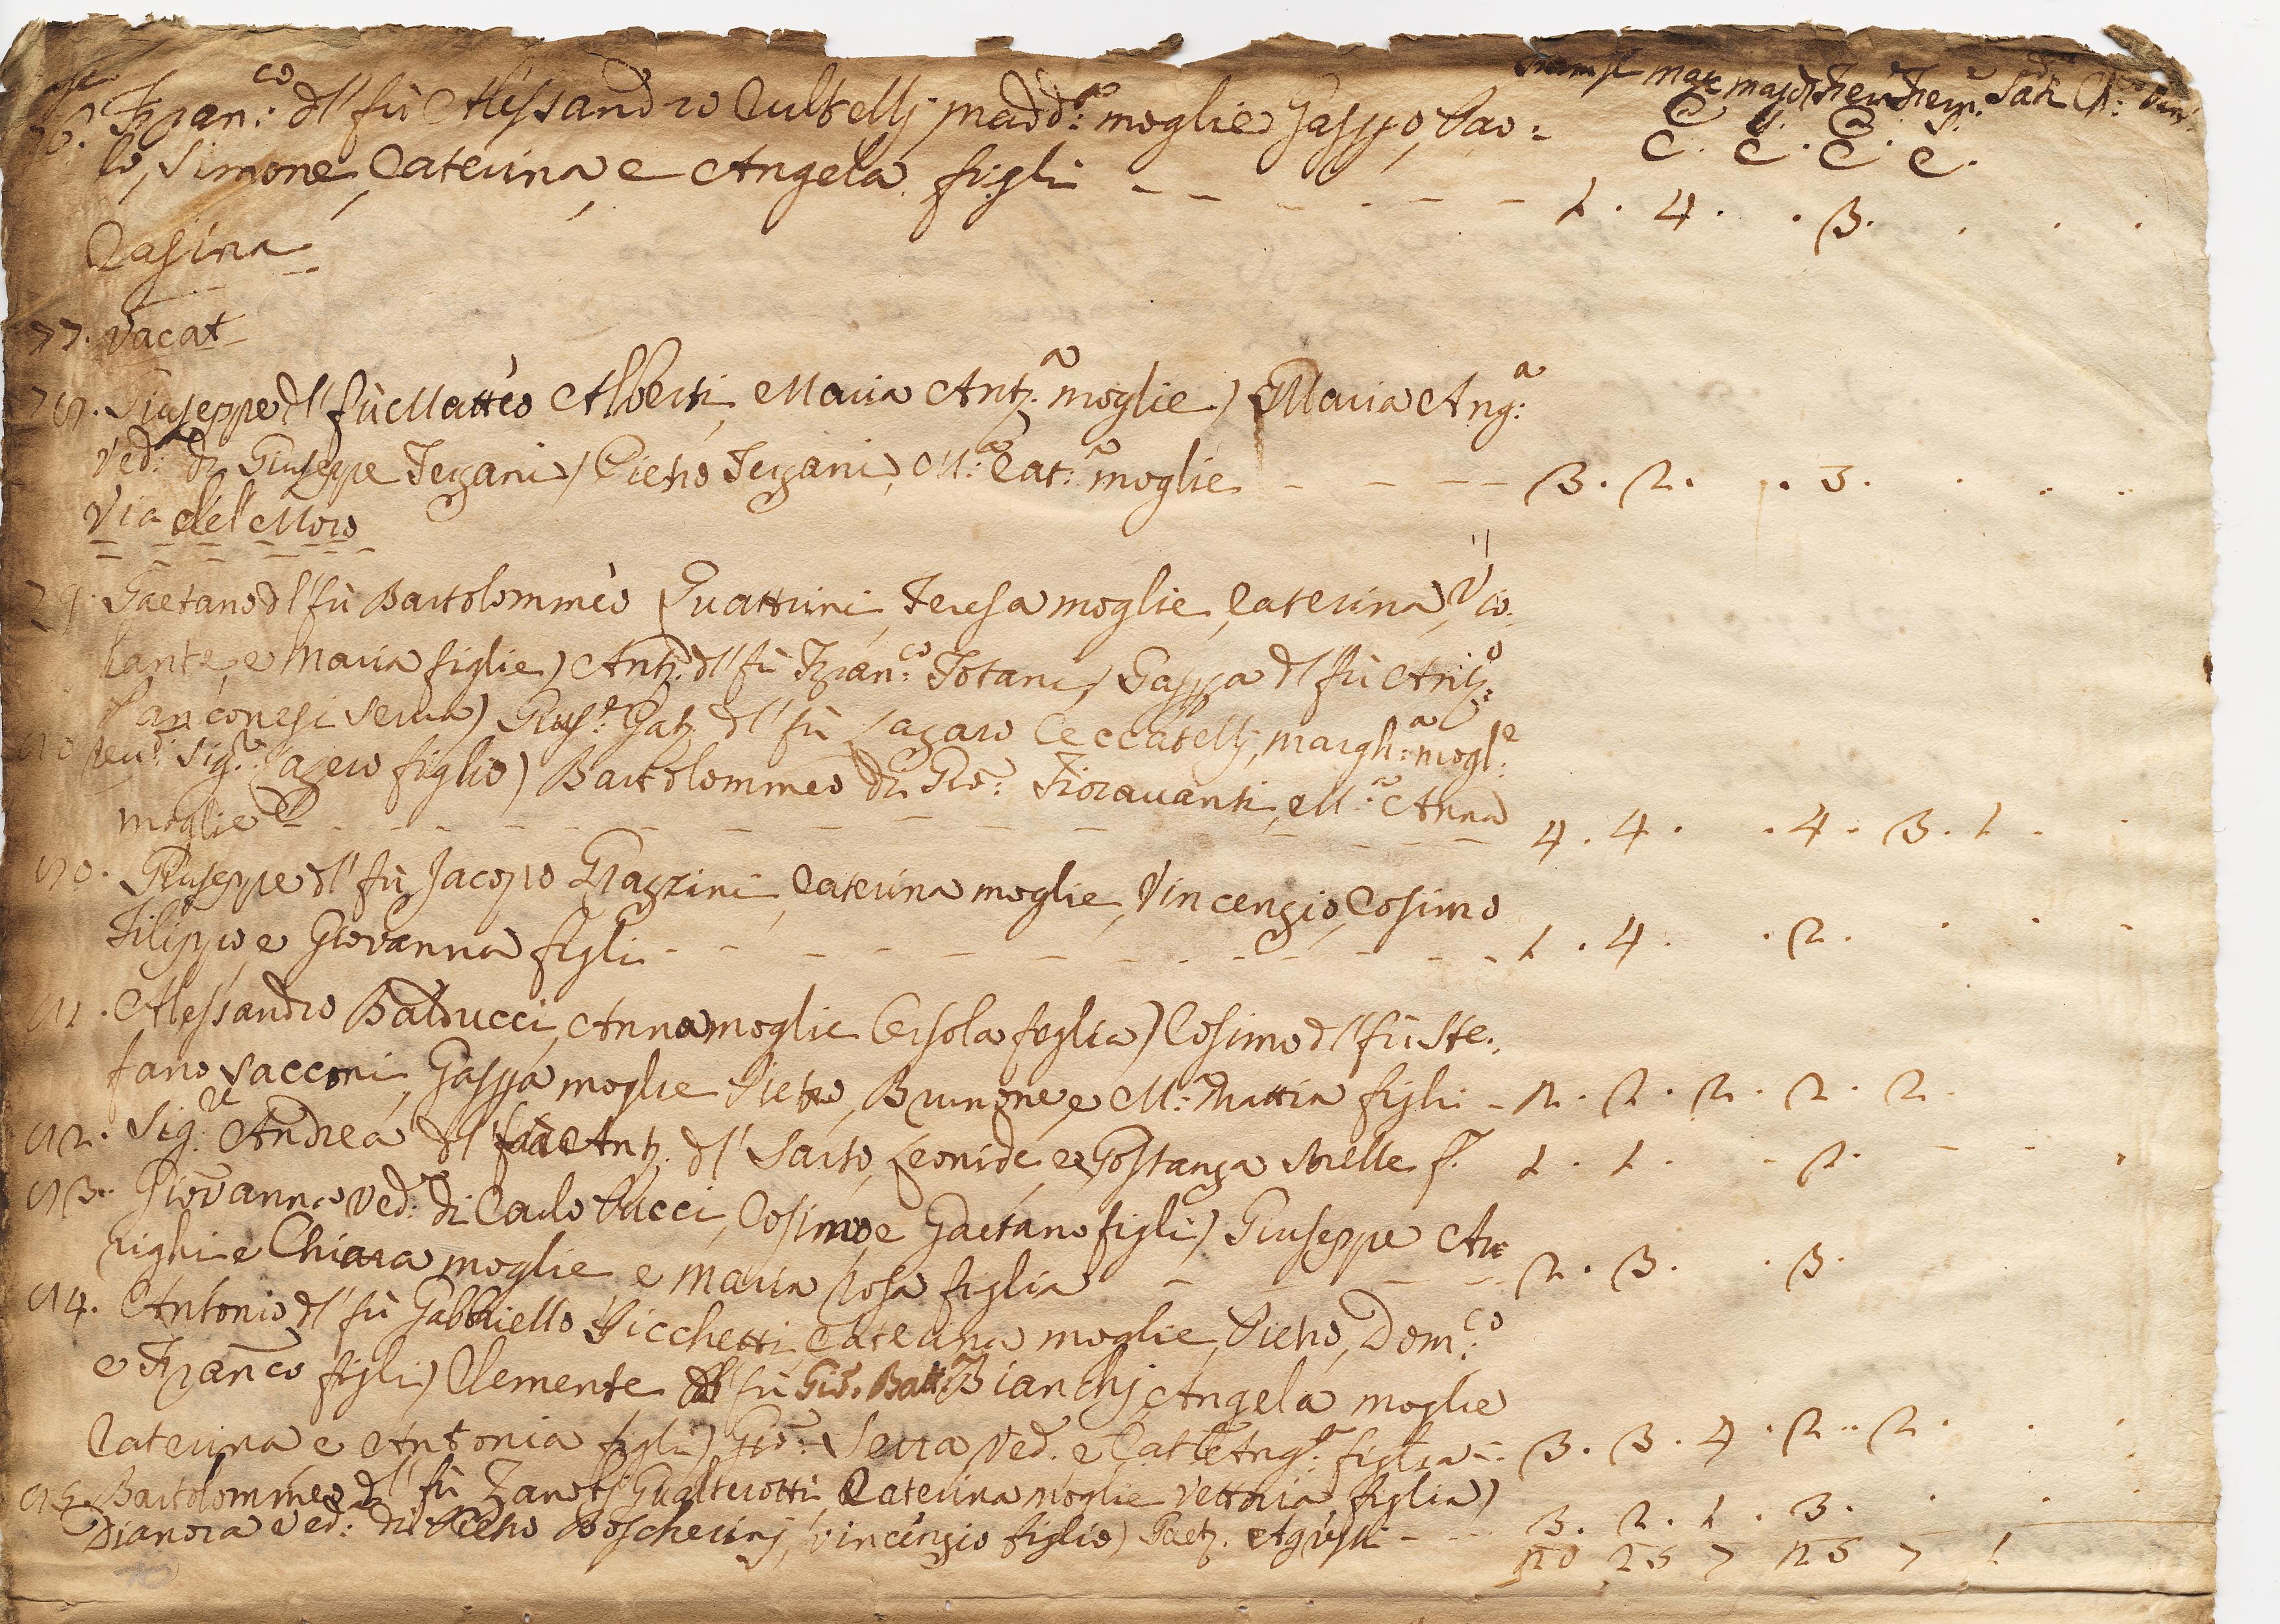 Case famigl. Masc. masc. Fem. Fem. Sac. Ch.
C. C. C. C.
76. Fran.co dl' fù Alessandro Culbelli, Madd.a moglie Gasp.o, Pao=
lo, Simone, Caterina, e Angela figli - - - - - - - 1 . 4 . . 3 . . . .
Casina
77. Vacat
78. Giuseppe dl' fù Matteo Alberti, Maria Ant.a moglie) Maria Ang.a
Ved.a di Giuseppe Tezani) Pietro Tezani, M.a Cat.a moglie - - - - 3 . 2 . . 3 . . . .
Via del Moro
79. Gaetano dl' fù Bartolommeo Quattrini, Teresa moglie, Caterina, Vio=
lante, e Maria figlie) Ant. dl' fù Fran.co Totani) Gaspa dl' fù Ant.o
Panconesi serva) Gius.e Gat. dl' fù Lazaro Ceccatelli, Margh.a mogl.e
Lazero figlio) Bartolommeo di Gio: Fioravanti, M.a Anna
moglie - - - - - - - - - 4 . 4 . . 4 . 3 . 1 . .
80. Giuseppe dl' fù Jacopo Grazzini, Caterina moglie, Vincenzio, Cosimo
Filippo, e Giovanna figli - - - - - - - - - 1 . 4 . . 2 . . . .
81. Alessandro Balducci, Anna moglie Orsola figlia) Cosimo dl' fù Ste=
fano Sacconi, Gaspa moglie Pietro, Brunone, e M.a Mattia figli - 2 . 2 . 2 . 2 . 2 .
82. Sig.re Andrea dl' fù Ant. dl' Sarto, Leonide, e Gostanza Sorelle f. 1 . 1 . . 2 .
83. Giovanna Ved.a di Carlo Pucci, Cosimo, e Gaetano figli) Giuseppe Ar=
righi e Chiara moglie e Maria Rosa figlia - - - 2 . 3 . . 3 .
84. Antonio dl' fù Gabbriello Picchetti, Caterina moglie, Pietro, Dom.co
e Franco figli) Clemente dl' fù Gio. Batt. Bianchi, Angela moglie
Caterina, e Antonia figli) Gio: Serra Ved. e Cat.e Ang.a figlia - . 3 . 3 . 4 . 2 . 2 .
85. Bartolommeo dl' fù Zanobj Gualterotti, Caterina moglie Vettoria figlia)
Dianora Ved: di Pietro Boscherinj, Vincenzio figlio) Gaet. Agresti - - 3 . 2 . 1 . 3 .
20 25 7 26 7 1